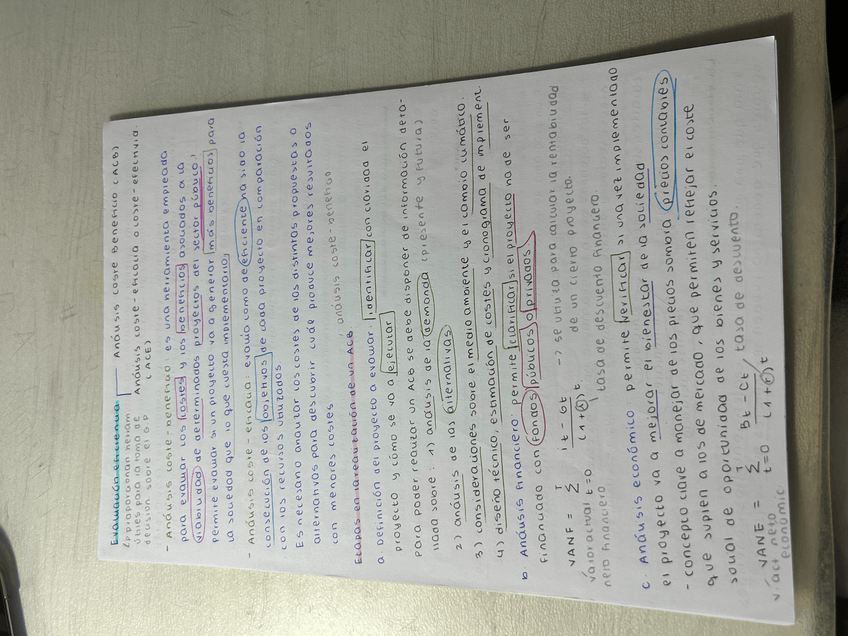 Evaluación eficiencia
Análisis Coste Beneficio (ACB)
↳ proporcionan herram.
Análisis coste-eficacia o coste-efectivid.
útiles para la toma de
(ACE)
decisión sobre el GP
- Análisis coste-beneficio: es una herramienta empleada
para evaluar los costes y los beneficios asociados a la
viabilidad de determinados proyectos del sector público,
permite evaluar si un proyecto va a generar más beneficios para
la sociedad que lo que cuesta implementarlo
- Análisis coste-eficacia: evalúa como de eficiente ha sido la
consecución de los objetivos de cada proyecto en comparación
con los recursos utilizados
Es necesario analizar los costes de las distintas propuestas o
alternativas para descubrir cuál produce mejores resultados
con menores costes
análisis coste-beneficio
Etapas en la realización de un ACB
a. Definición del proyecto a evaluar: identificar con claridad el
proyecto y cómo se va a ejecutar
Para poder realizar un ACB se debe disponer de información deta-
llada sobre: 1) análisis de la demanda (presente y futura)
2) análisis de las alternativas
3) consideraciones sobre el medio ambiente y el cambio climático.
4) diseño técnico, estimación de costes y cronograma de implement.
b. Análisis financiero: permite clarificar si el proyecto ha de ser
financiado con fondos públicos o privados
VANF = T Σ t=0 It - Gt / (1+r)t → se utiliza para calcular la rentabilidad
de un cierto proyecto.
valor actual
neto financiero
tasa de descuento financiero.
c. Análisis económico: permite verificar si una vez implementado
el proyecto va a mejorar el bienestar de la sociedad
- concepto clave a manejar de los precios sombra/precios contables
que suplen a los de mercado, que permiten reflejar el coste
social de oportunidad de los bienes y servicios.
VANE = T Σ t=0 Bt - Ct / (1+r)t tasa de descuento.
v. act. neto
económic